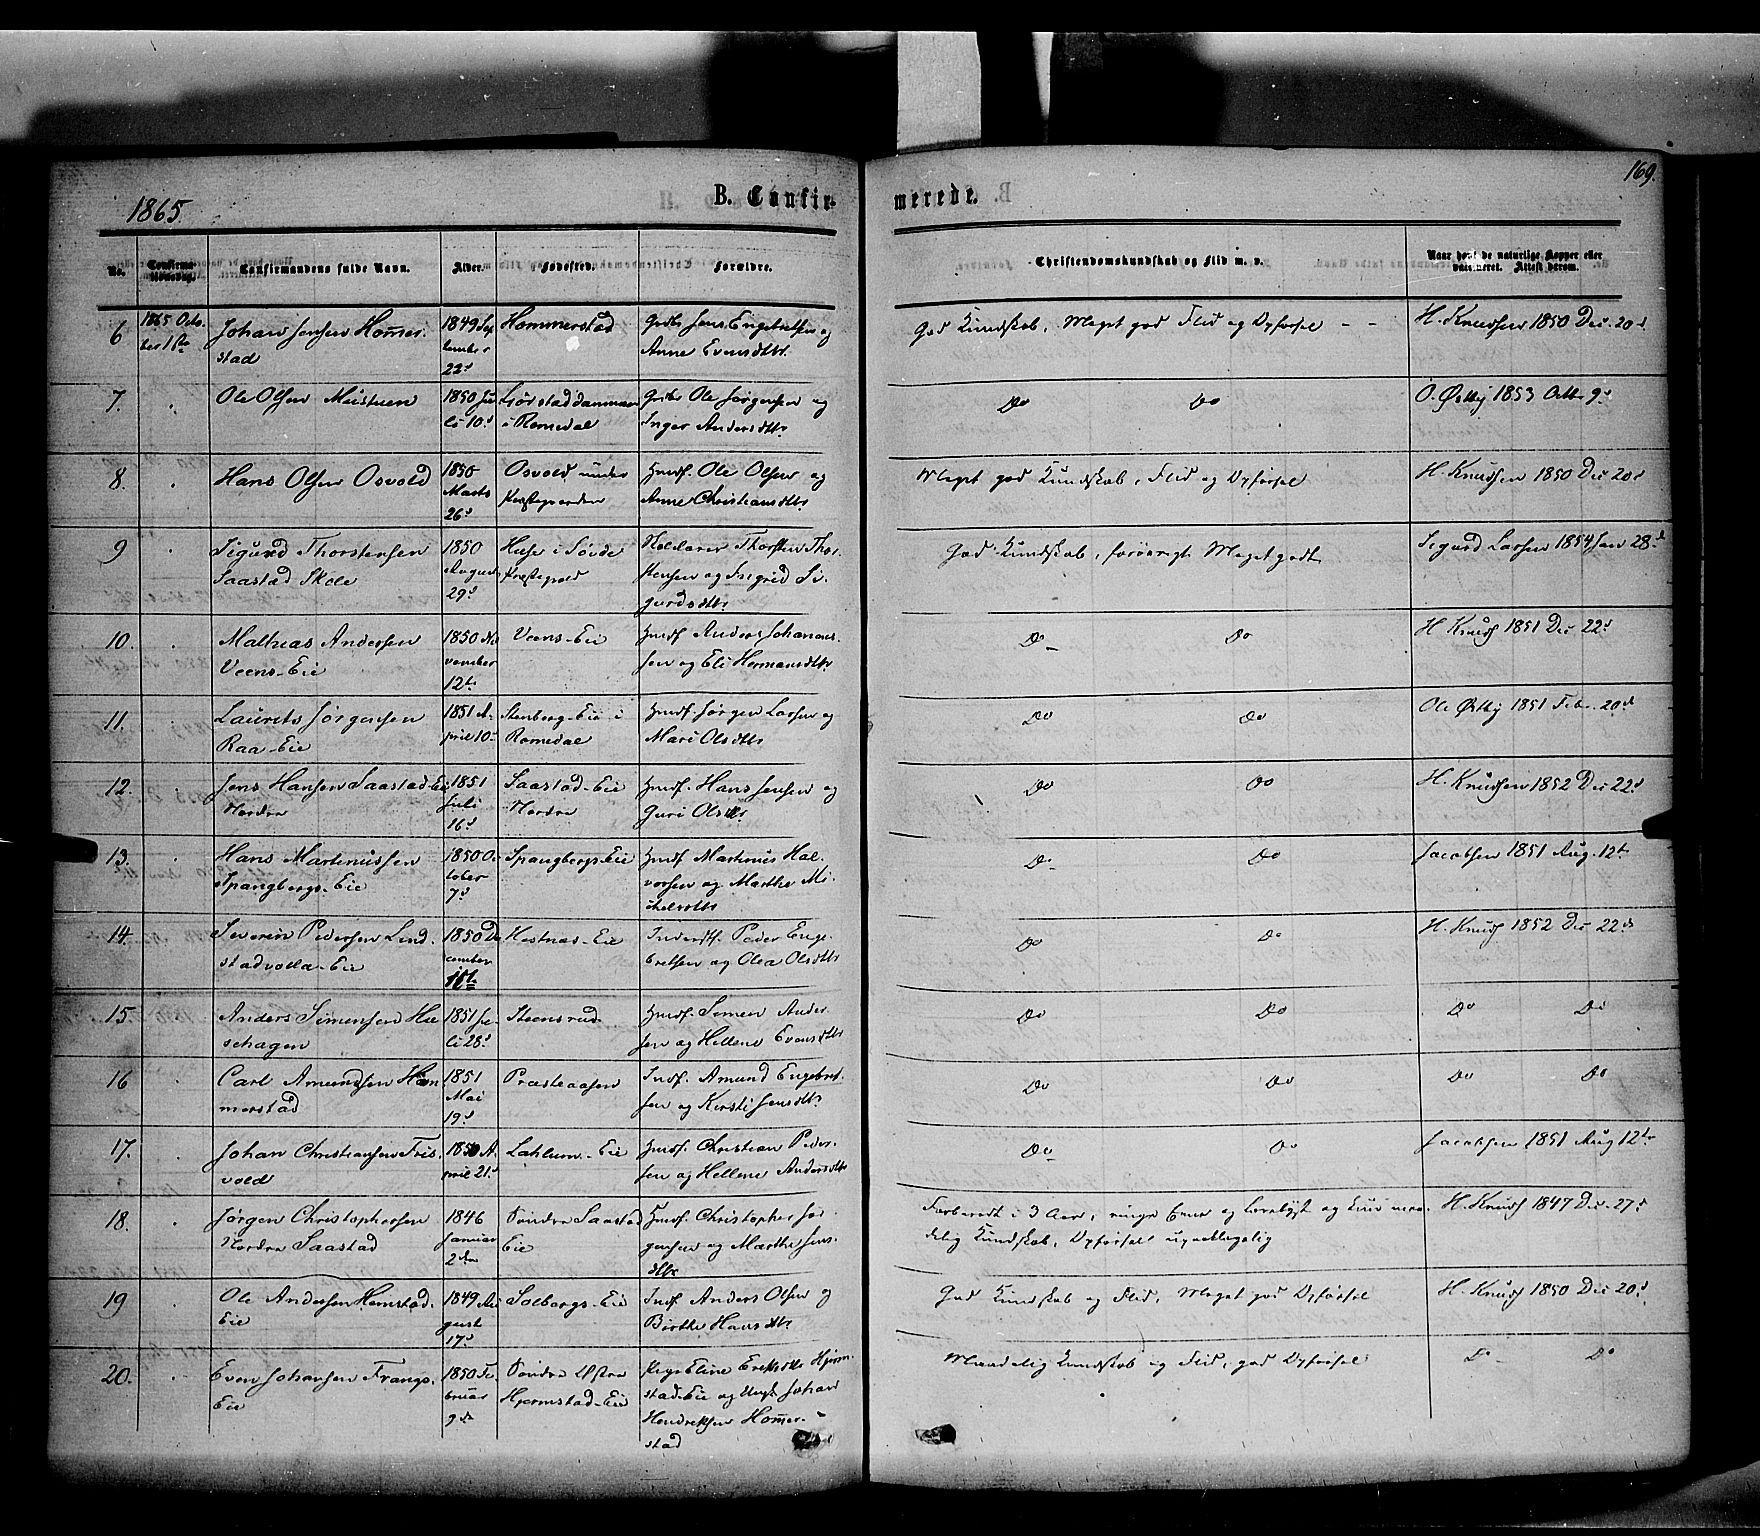 169.
1865
B. Confirmerede.
No.
Confirmationsdag.
Confirmandens fulde Navn.
Alder.
Fødested.
Forældre.
Christendomskundskab og Flid m. v.
Naar havt de naturlige Kopper eller vaccineret. Attest derom.
6
1865 October 1ste
Johan Jensen Hom̅erstad
1849 September 22d
Hommerstad
Gdbr Jens Engebretsen og Anne Evensdttr
God Kundskab, Meget god Flid og Opførsel - -
H. Knudsen 1850 Dec. 20d
7.
Ole Olsen Mustuen
1850 Juli 10d
i Romedal
Gdbr Ole Jørgensen og Inger Andersdttr
Do Do
O. Østby 1853 Octbr 9d
8.
Hans Olsen Osvold
1850 Marts 26d
Osvold under Præstegaarden
Huusf. Ole Olsen og Anne Christiansdttr
Meget god Kundskab, Flid og Opførsel
H. Knudsen 1850 Dec 20d
9
Sigurd Thorstensen Saastad Skole
1850 August 29d
Huse i Præstegjeld
Thorsten Thorstensen og Sigrid Sigurdsdttr
God Kundskab, forøvrigt Meget godt
Sigurd Larsen 1854 Jan 28d
10.
Mathias Andersen Veens-Eie
1850 November 12te
Veens-Eie
Huusf. Anders Johannessen og Eli Hermansdttr
Do Do
H Knuds 1851 Dec 22d
11.
Laurits Jørgensen Raa-Eie
1851 April 10d
Stenberg-Eie i Romedal
Huusf. Jørgen Larsen og Mari Olsdttr
Do Do
Ole Østby 1851 Feb. 20d
12.
Jens Hansen Saastad-Eie Nordre
1851 Juli 16d
Saastad-Eie Nordre
Huusf. Hans Jensen og Guri Olsdttr
Do Do
H. Knudsen 1852 Dec 22d
13.
Hans Martinussen Spangbergs-Eie
1850 October 7d
Spangbergs-Eie
Huusf Martinus Halvorsen og Marthe Mikelsdttr
Do Do
Jacobsen 1851 Aug. 12te
14.
Severin Pedersen Lindstadvolla-Eie
1850 December
Hestnæs-Eie
Inderstf. Peder Engebretsen og Olea Olsdttr
Do Do
H. Knuds 1852 Dec 22d
15.
Anders Simensen Hueschagen
1851 Juli 28d
Steensrud
Huusf. Simen Andersen og Hellene Evensdttr
Do Do
Do Do
16
Carl Amundsen Hom̅merstad
1851 Mai 19d
Præsteaasen
Indf. Amund Engebretsen og Kirsti Jensdttr
Do Do
Do Do
17.
Johan Christiansen Frisvold
1850 April 21d
Lahlum-Eie
Huusf. Christian Pedersen og Hellene Andersdttr
Do Do
Jacobsen 1851 Aug 12te
18.
Jørgen Christophersen Nordre Saastad
1846 Januar 2den
Søndre Saastad Eie
Huusf. Christopher Jørgensen og Marthe Jensdttr
Forberedt i 3 Aar, ringe Evne og Lærelyst og kun maadelig Kundskab, Opførsel upaaklagelig
H. Knuds 1847 Dec. 27d
19
Ole Andersen Hemstad-Eie
1849 August 17d
Solbergs-Eie
Indf. Anders Olsen og Birthe Hansdttr
God Kundskab og Flid, Meget god Opførsel
H. Knuds 1850 Dec 20d
20.
Even Johansen Frangs-Eie
1850 Februar 9de
Søndre Østre Hjermstad-Eie
Pige Eline Eriksdttr Hjermstad-Eie og Ungk Johan Hendriksen Hom̅erstad
Maadelig Kundskab og Flid, god Opførsel
Do Do